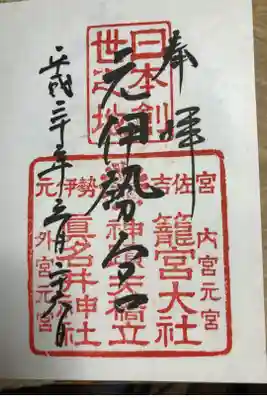 奉拝
日本創
世 地
元伊勢
平成二十五年三月
元伊勢 吉佐宮
内宮元宮
籠宮大社
天橋立
眞名井神社
外宮元宮